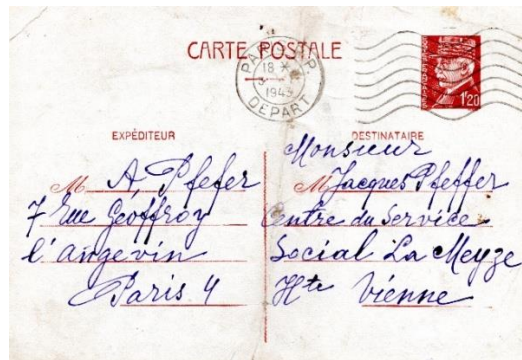 CARTE POSTALE
PARIS R.P.
18 *
3
1943
DEPART
1'20
EXPÉDITEUR
M A. Pfefer
7 Rue Geoffroy
l'angevin
Paris 4
DESTINATAIRE
Monsieur
M Jacques Pfeffer
Centre du Service
Social La Meyze
Hte Vienne